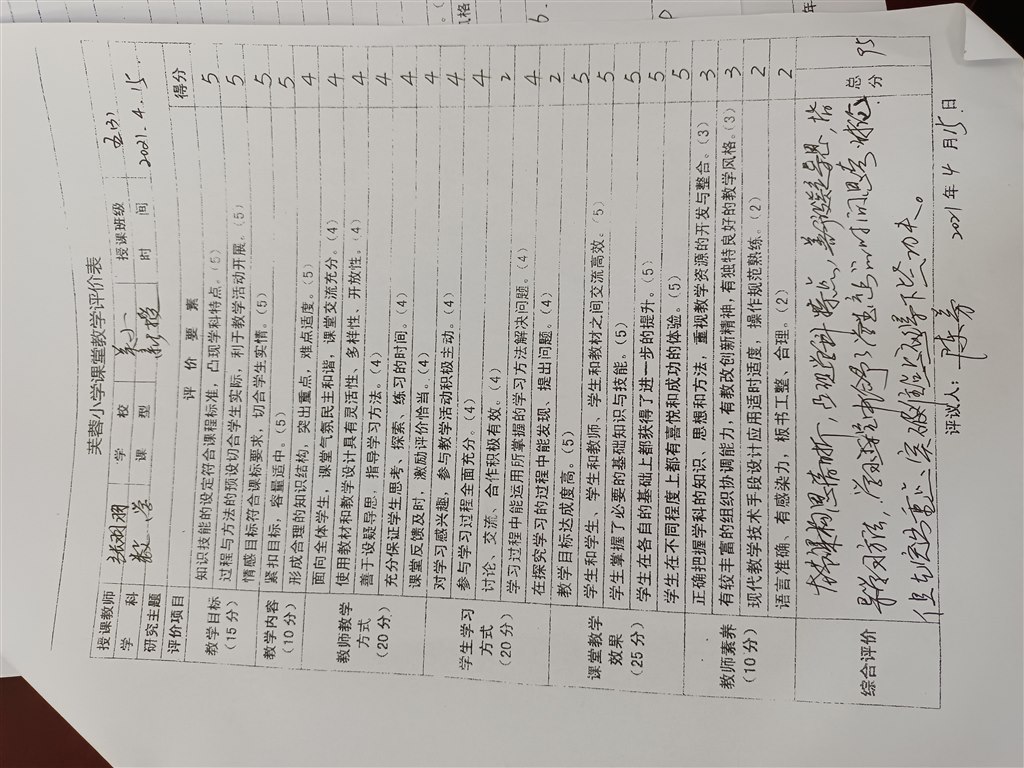 芙蓉小学课堂教学评价表
授课教师 学 校 芙小 授课班级
学 科 数学 课 型 新授 时 间 2021.4.15
研究主题
评价项目 评 价 要 素 得分
教学目标（15分） 知识技能的设定符合课程标准，凸现学科特点。（5） 5
过程与方法的预设切合学生实际，利于教学活动开展。（5） 5
情感目标符合课标要求，切合学生实情。（5） 5
教学内容（10分） 紧扣目标，容量适中。（5） 5
形成合理的知识结构，突出重点，难点适度。（5） 4
教师教学方式（20分） 面向全体学生，课堂气氛民主和谐，课堂交流充分（4） 4
使用教材和教学设计具有灵活性、多样性、开放性。（4） 4
善于设疑导思、指导学习方法。（4） 4
充分保证学生思考、探索、练习的时间。（4） 4
课堂反馈及时，激励评价恰当。（4） 4
学生学习方式（20分） 对学习感兴趣，参与教学活动积极主动。（4） 4
参与学习过程全面充分。（4） 4
讨论、交流、合作积极有效。（4） 2
学习过程中能运用所掌握的学习方法解决问题。（4） 4
在探究学习的过程中能发现、提出问题。（4） 2
课堂教学效果（25分） 教学目标达成度高。（5） 5
学生和学生、学生和教师、学生和教材之间交流高效。（5） 5
学生掌握了必要的基础知识与技能。（5） 5
学生在各自的基础上都获得了进一步的提升。（5） 5
学生在不同程度上都有喜悦和成功的体验。（5） 5
教师素养（10分） 正确把握学科的知识、思想和方法，重视教学资源的开发与整合。（3） 3
有较丰富的组织协调能力，有教改创新精神，有独特良好的教学风格。（3） 3
现代教学技术手段设计应用适时适度，操作规范熟练。（2） 2
语言准确、有感染力，板书工整、合理。（2） 2
综合评价 本课构思清晰，凸现学科特点，善设疑导思，指 总分 95
导学习方法，学生学习中给予了充足的时间思考
但在突出重点，实服住上应下些功夫。
评议人：陈芳
2021年4月15日